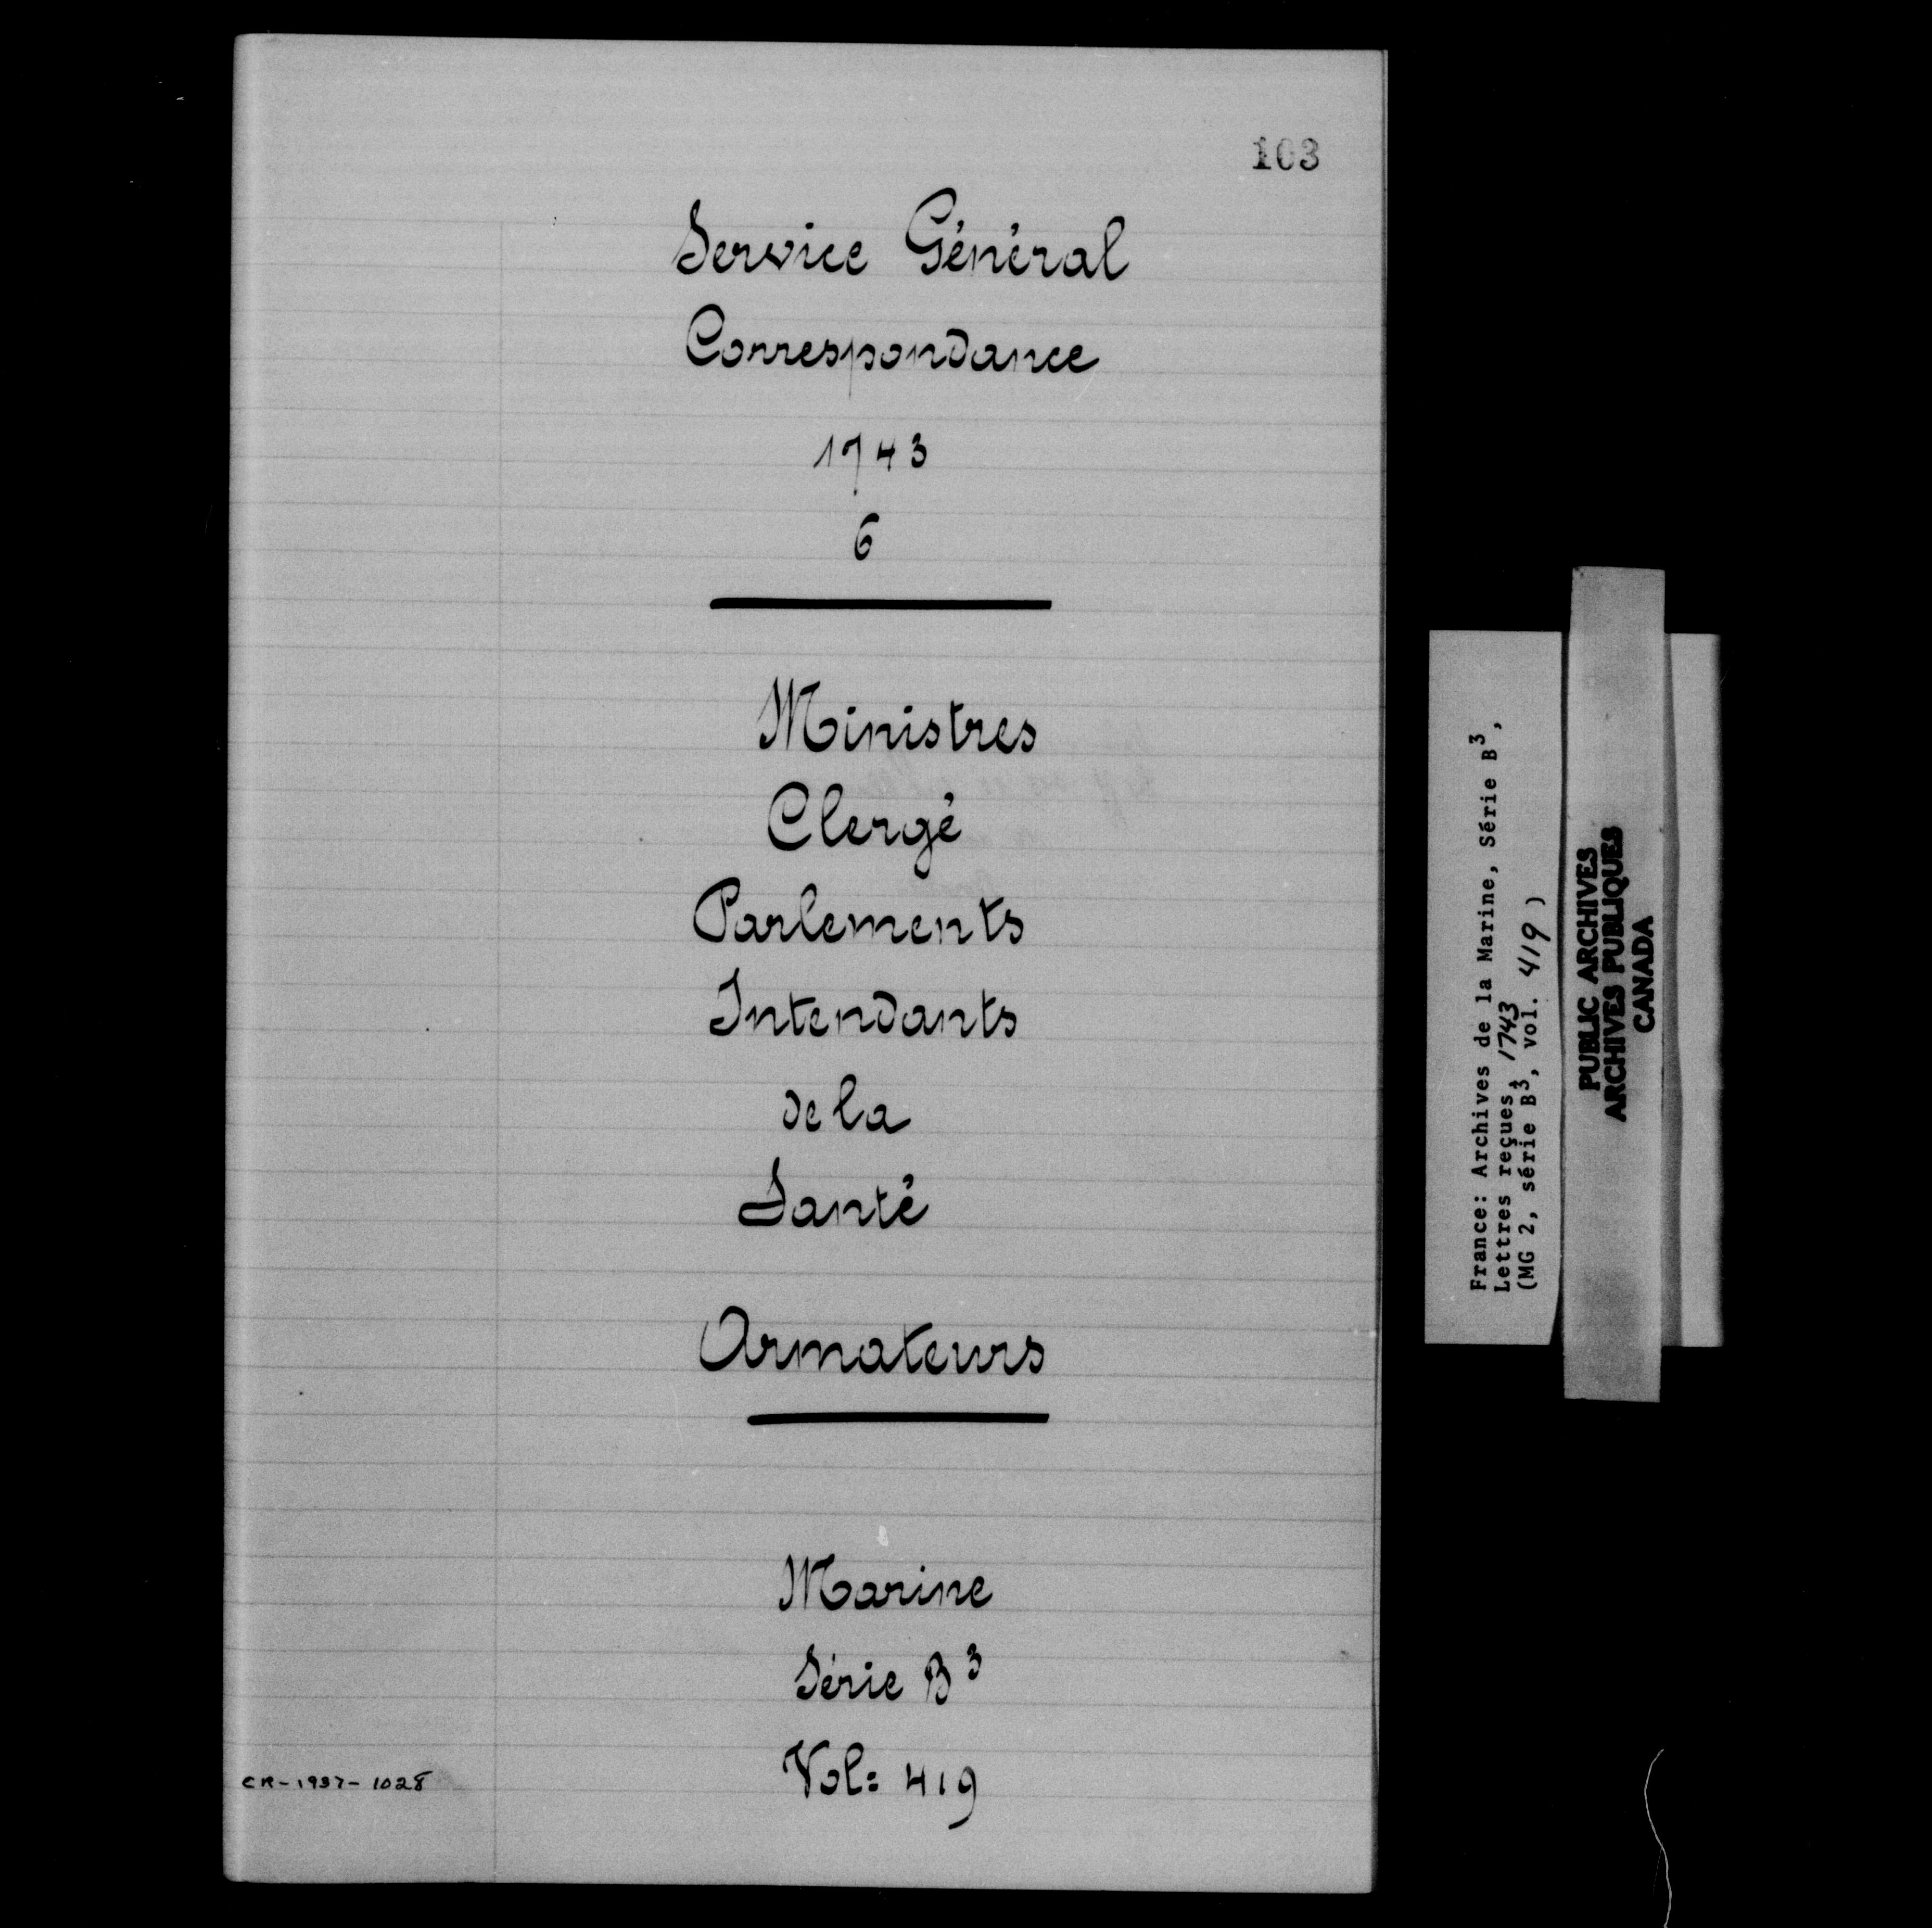 103
Service Général
Correspondance
1743
6
Ministres
Clergé
Parlements
Intendants
de la
Santé
Armateurs
Marine
Série B³
Vol: 419
CR-1937-1028
France: Archives de la Marine, Série B³,
Lettres reçues, 1743
(MG 2, série B³, vol. 419)
PUBLIC ARCHIVES
ARCHIVES PUBLIQUES
CANADA